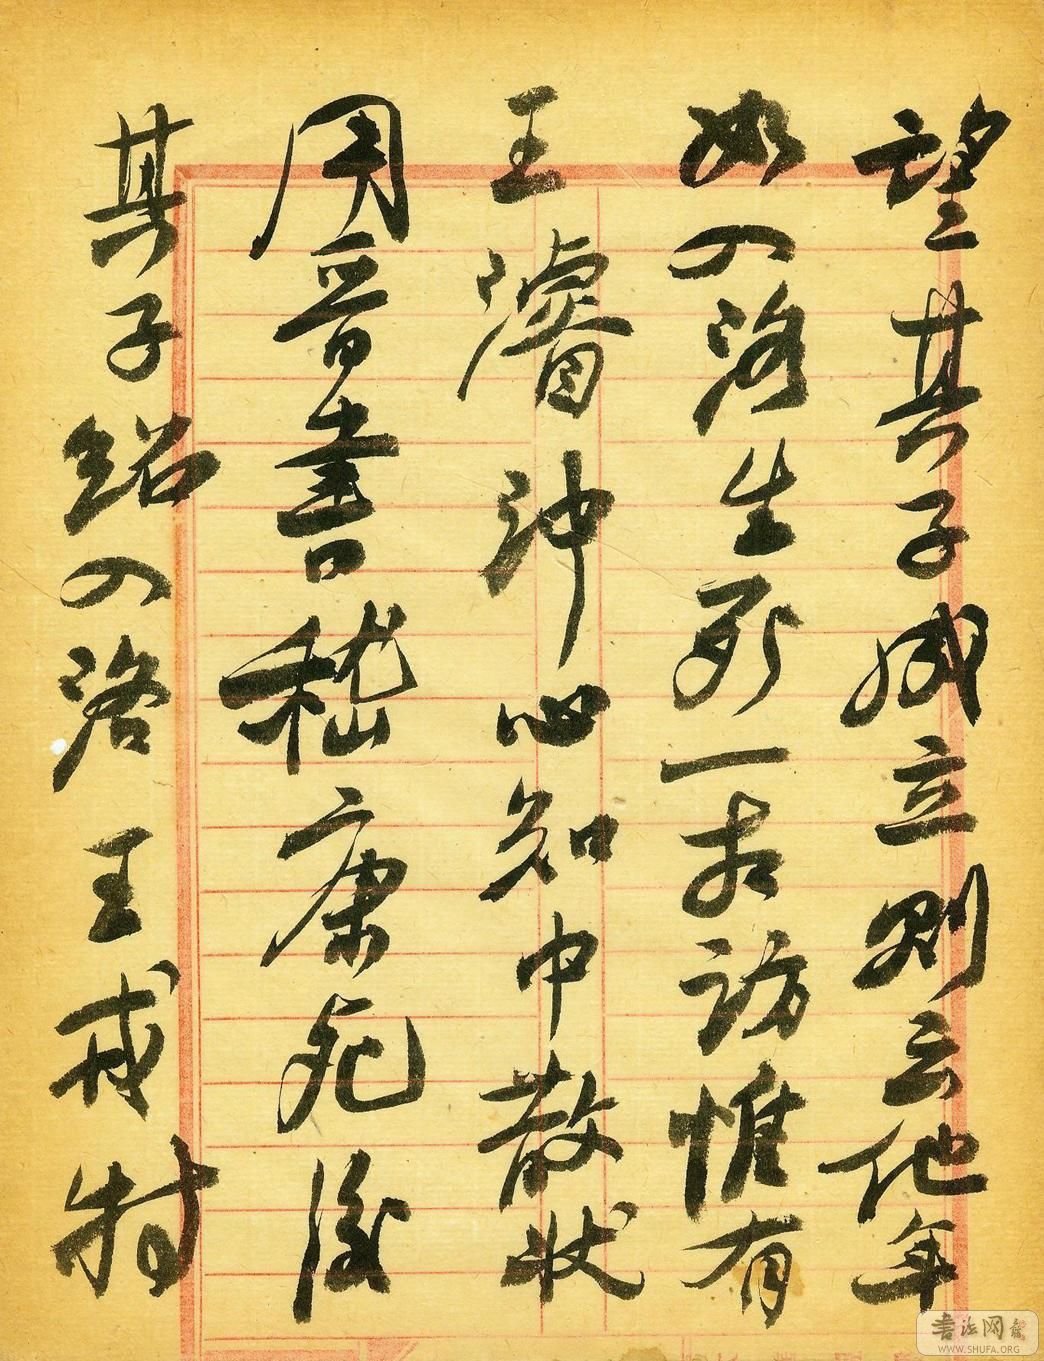 望其子成立则云他年
如入洛生死一相访惟有
王濬冲心知中散状
用晋書嵇康死後
其子绍入洛王戎特
書法网
WWW.SHUFA.ORG